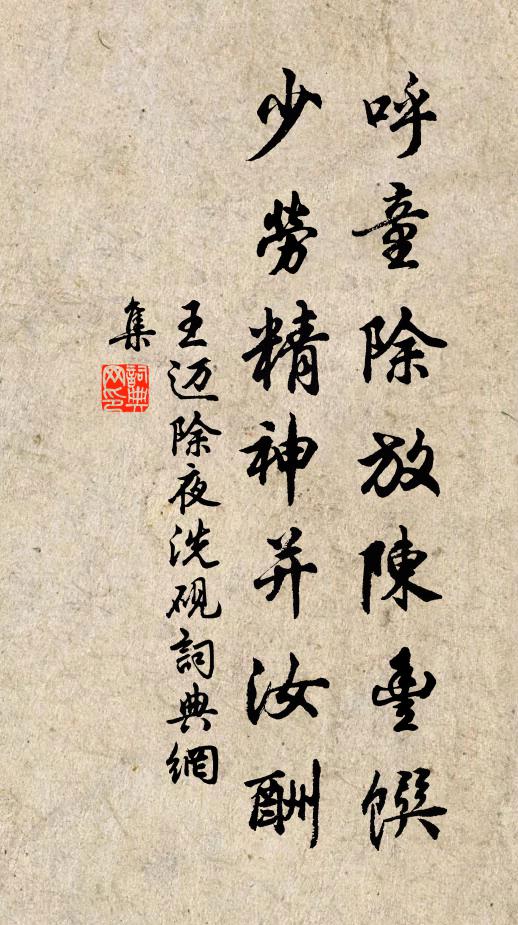 呼童除放陳豊饌
少勞精神并汝酬
王迈除夜洗硯詞典網
集
詞典網印